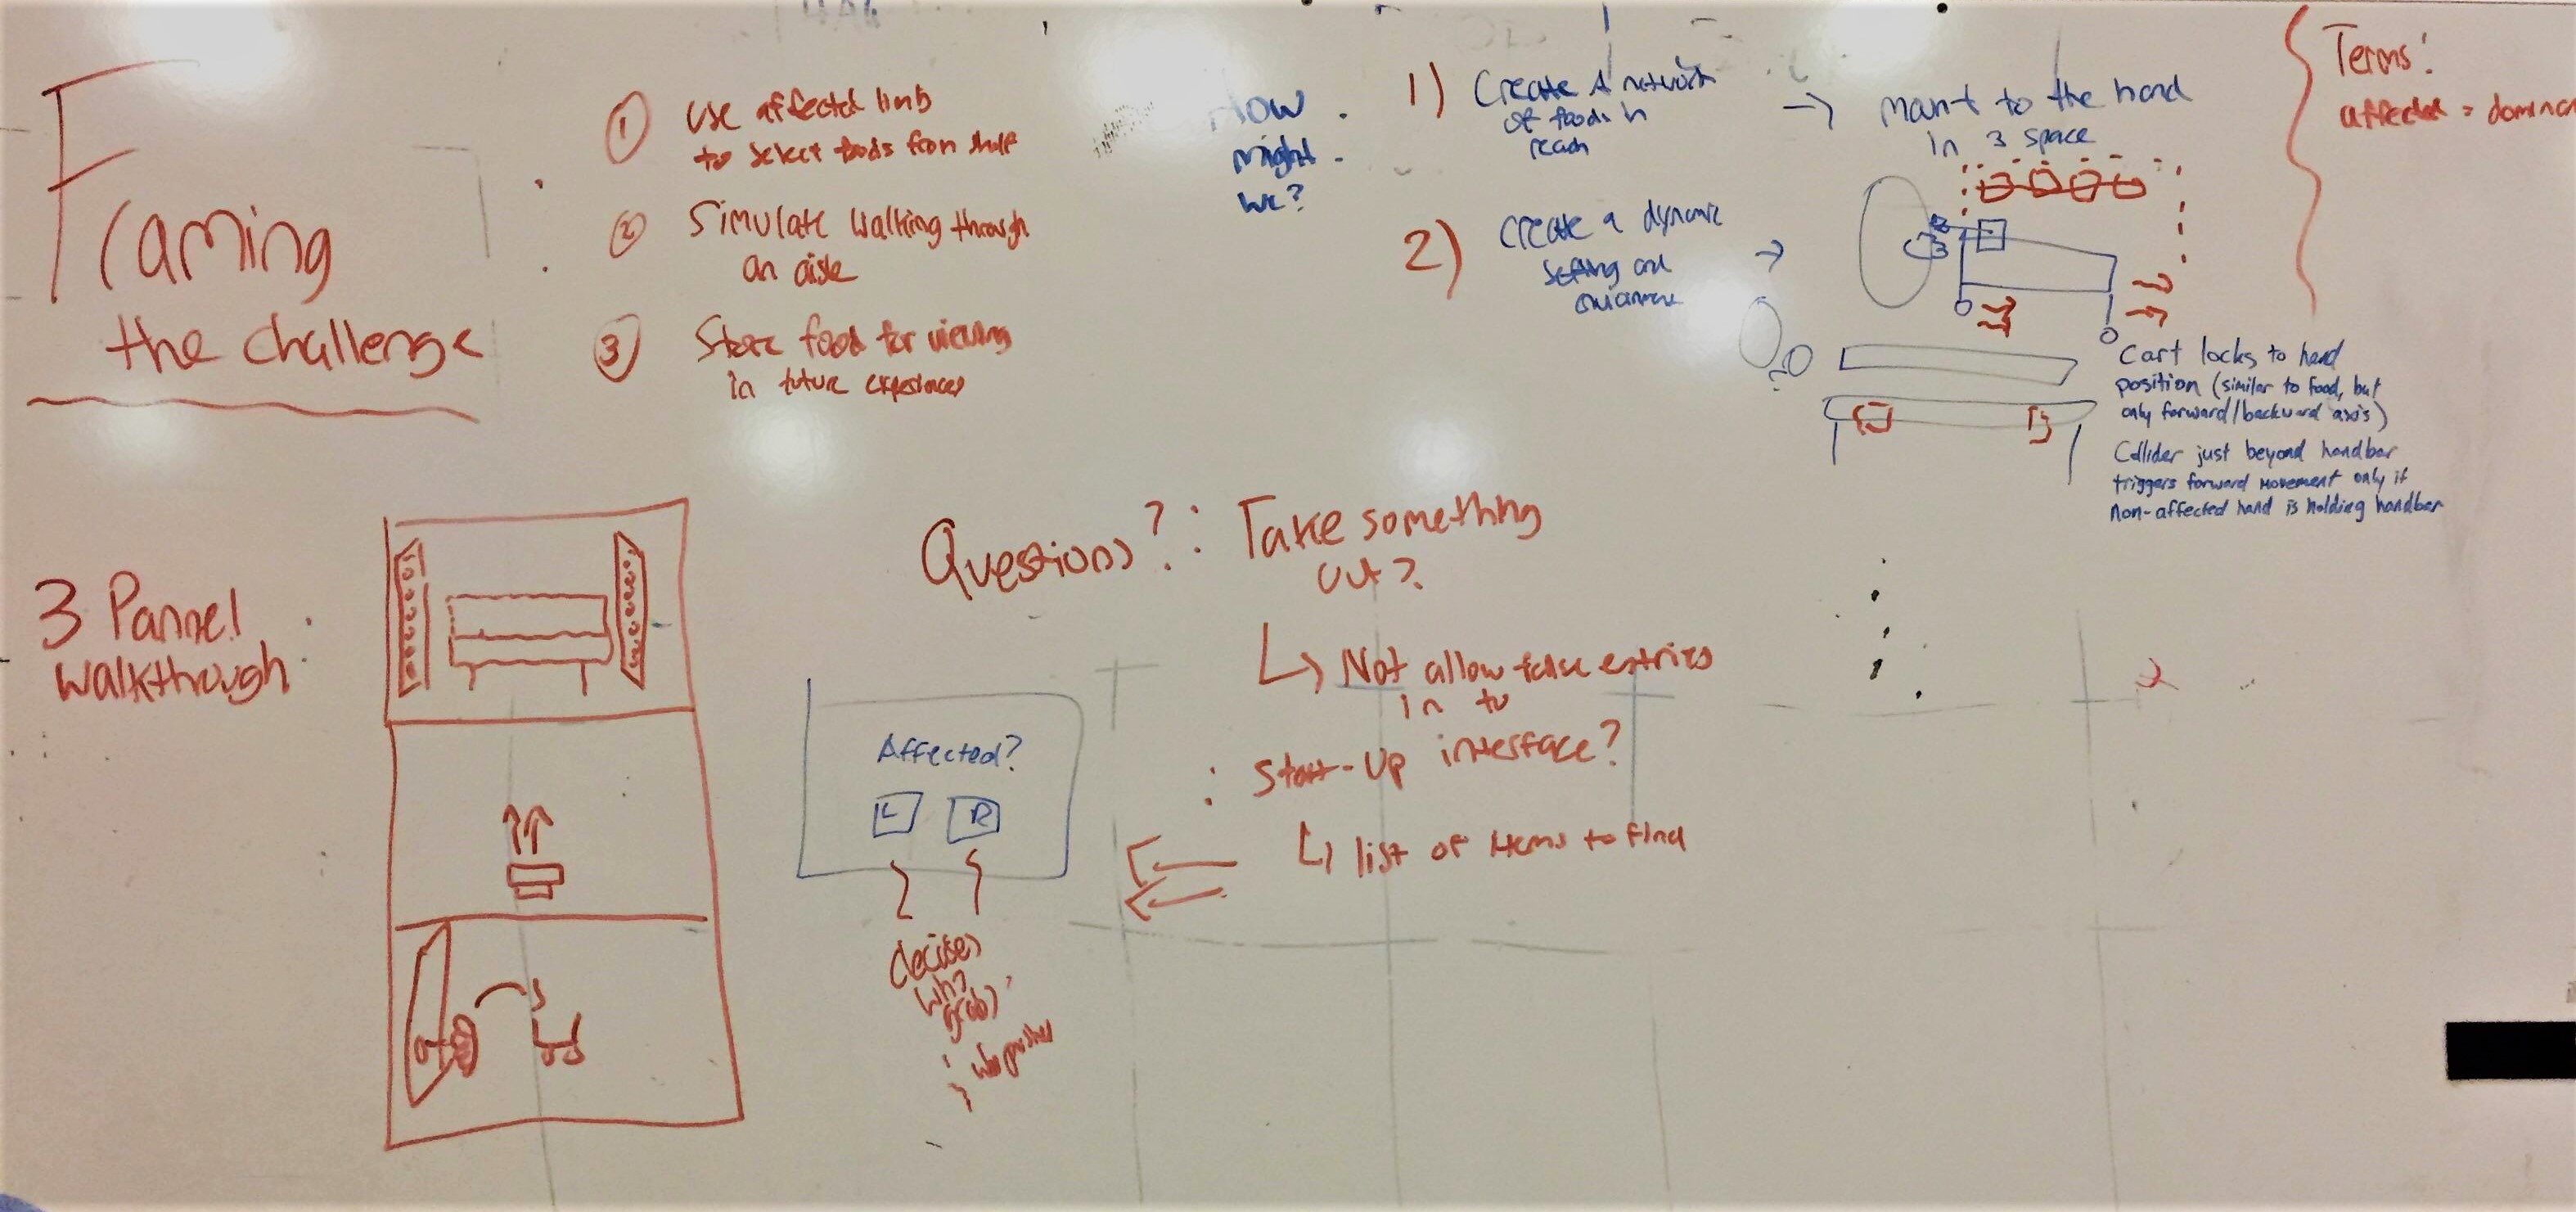 Framing
the challenge
1 use affected limb
to select foods from shelf
2 Simulate walking through
an aisle
3 Store food for viewing
in future experiences
How
might
we?
1) Create A network
of foods in
reach
→ mount to the hand
in 3 space
2) create a dynamic
setting and
→
Terms:
affected = dominan
Cart locks to hand
position (similar to food, but
only forward/backward axis)
Collider just beyond handbar
triggers forward movement only if
non-affected hand is holding handbar
3 Pannel
walkthrough:
Questions?: Take something
out?
↳ Not allow false entries
in to
: Start-Up interface?
↳ list of items to find
Affected?
L R
decides
who
grabs
; who pushes